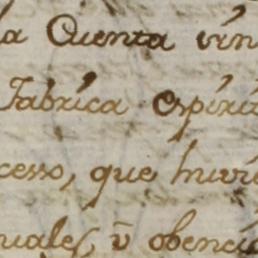 la Cuenta vin
Fabrica espirit
cesso, que huvie
uales, ū obenci